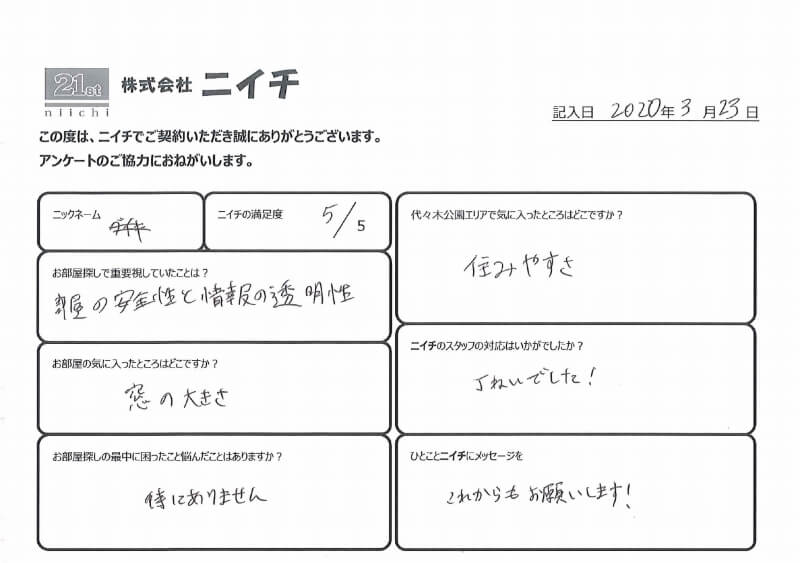 21st
niichi
株式会社 ニイチ
記入日 2020年3月23日
この度は、ニイチでご契約いただき誠にありがとうございます。
アンケートのご協力におねがいします。
ニックネーム
ニイチの満足度 5/5
お部屋探しで重要視していたことは?
部屋の安全性と情報の透明性
お部屋の気に入ったところはどこですか?
窓の大きさ
お部屋探しの最中に困ったこと悩んだことはありますか?
特にありません
代々木公園エリアで気に入ったところはどこですか?
住みやすさ
ニイチのスタッフの対応はいかがでしたか?
丁ねいでした!
ひとことニイチにメッセージを
これからもお願いします!